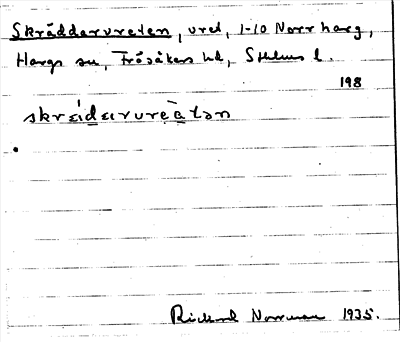 Skräddarvreten, vret, 1-10 Norrharg,
Hargs sn, Frösåkers hd, Sthlms l.
198
skrɛ́dɛrvrèatən
Rickard Norrman 1935.